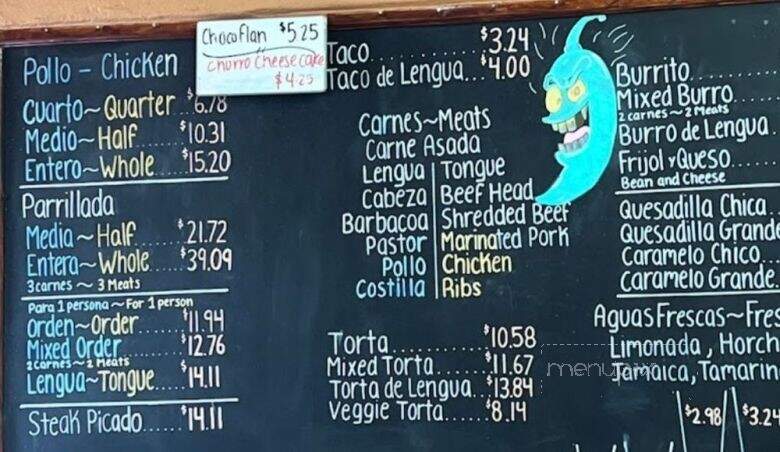 Chocoflan $5.25
Churro Cheesecake
$4.25
Pollo - Chicken
Cuarto~Quarter $6.78
Medio~Half $10.31
Entero~Whole.....$15.20
Parrillada
Media~Half.......$21.72
Entera~Whole.....$39.09
3carnes ~ 3 Meats
Para 1 persona~For 1 person
Orden~Order.......$11.94
Mixed Order.......$12.76
2carnes~2 Meats
Lengua~Tongue.....$14.11
Steak Picado......$14.11
Taco..............$3.24
Taco de Lengua...$4.00
Carnes~Meats
Carne Asada
Lengua | Tongue
Cabeza | Beef Head
Barbacoa | Shredded Beef
Pastor | Marinated Pork
Pollo | Chicken
Costilla | Ribs
Torta.............$10.58
Mixed Torta.......$11.67
Torta de Lengua...$13.84
Veggie Torta......$8.14
Burrito.....
Mixed Burro.....
2 carnes ~ 2 Meats
Burro de Lengua
Frijol y Queso.....
Bean and Cheese
Quesadilla Chica.
Quesadilla Grande
Caramelo Chico...
Caramelo Grande.
Aguas Frescas~Fres
Limonada, Horch
Jamaica, Tamarin
$2.98 $3.24
menu